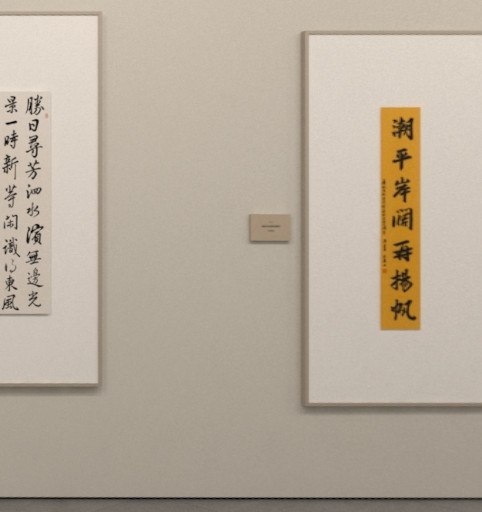 勝日尋芳泗水濱無邊光
景一時新等閑識得東風
潮平岸闊再揚帆